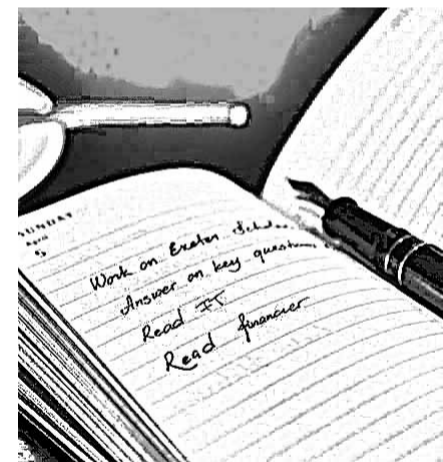 SUNDAY
April
5
Work on Exeter Schola
Answer on key questions
Read FT
Read financier